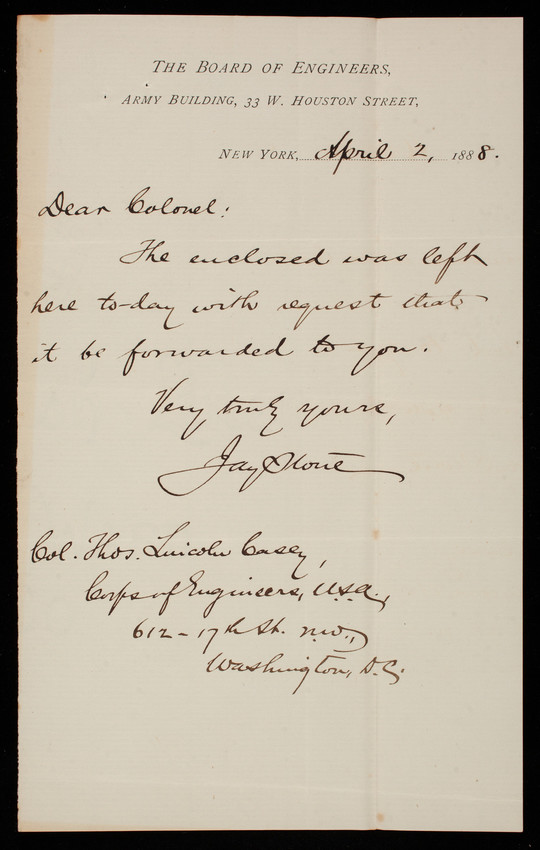 THE BOARD OF ENGINEERS,
ARMY BUILDING, 33 W. HOUSTON STREET,
NEW YORK, April 2, 1888.
Dear Colonel:
The enclosed was left
here to-day with request that
it be forwarded to you.
Very truly yours,
Jay Stone
Col. Thos. Lincoln Casey,
Corps of Engineers, U.S.A.,
612 - 17th St. N.W.,
Washington, D.C.